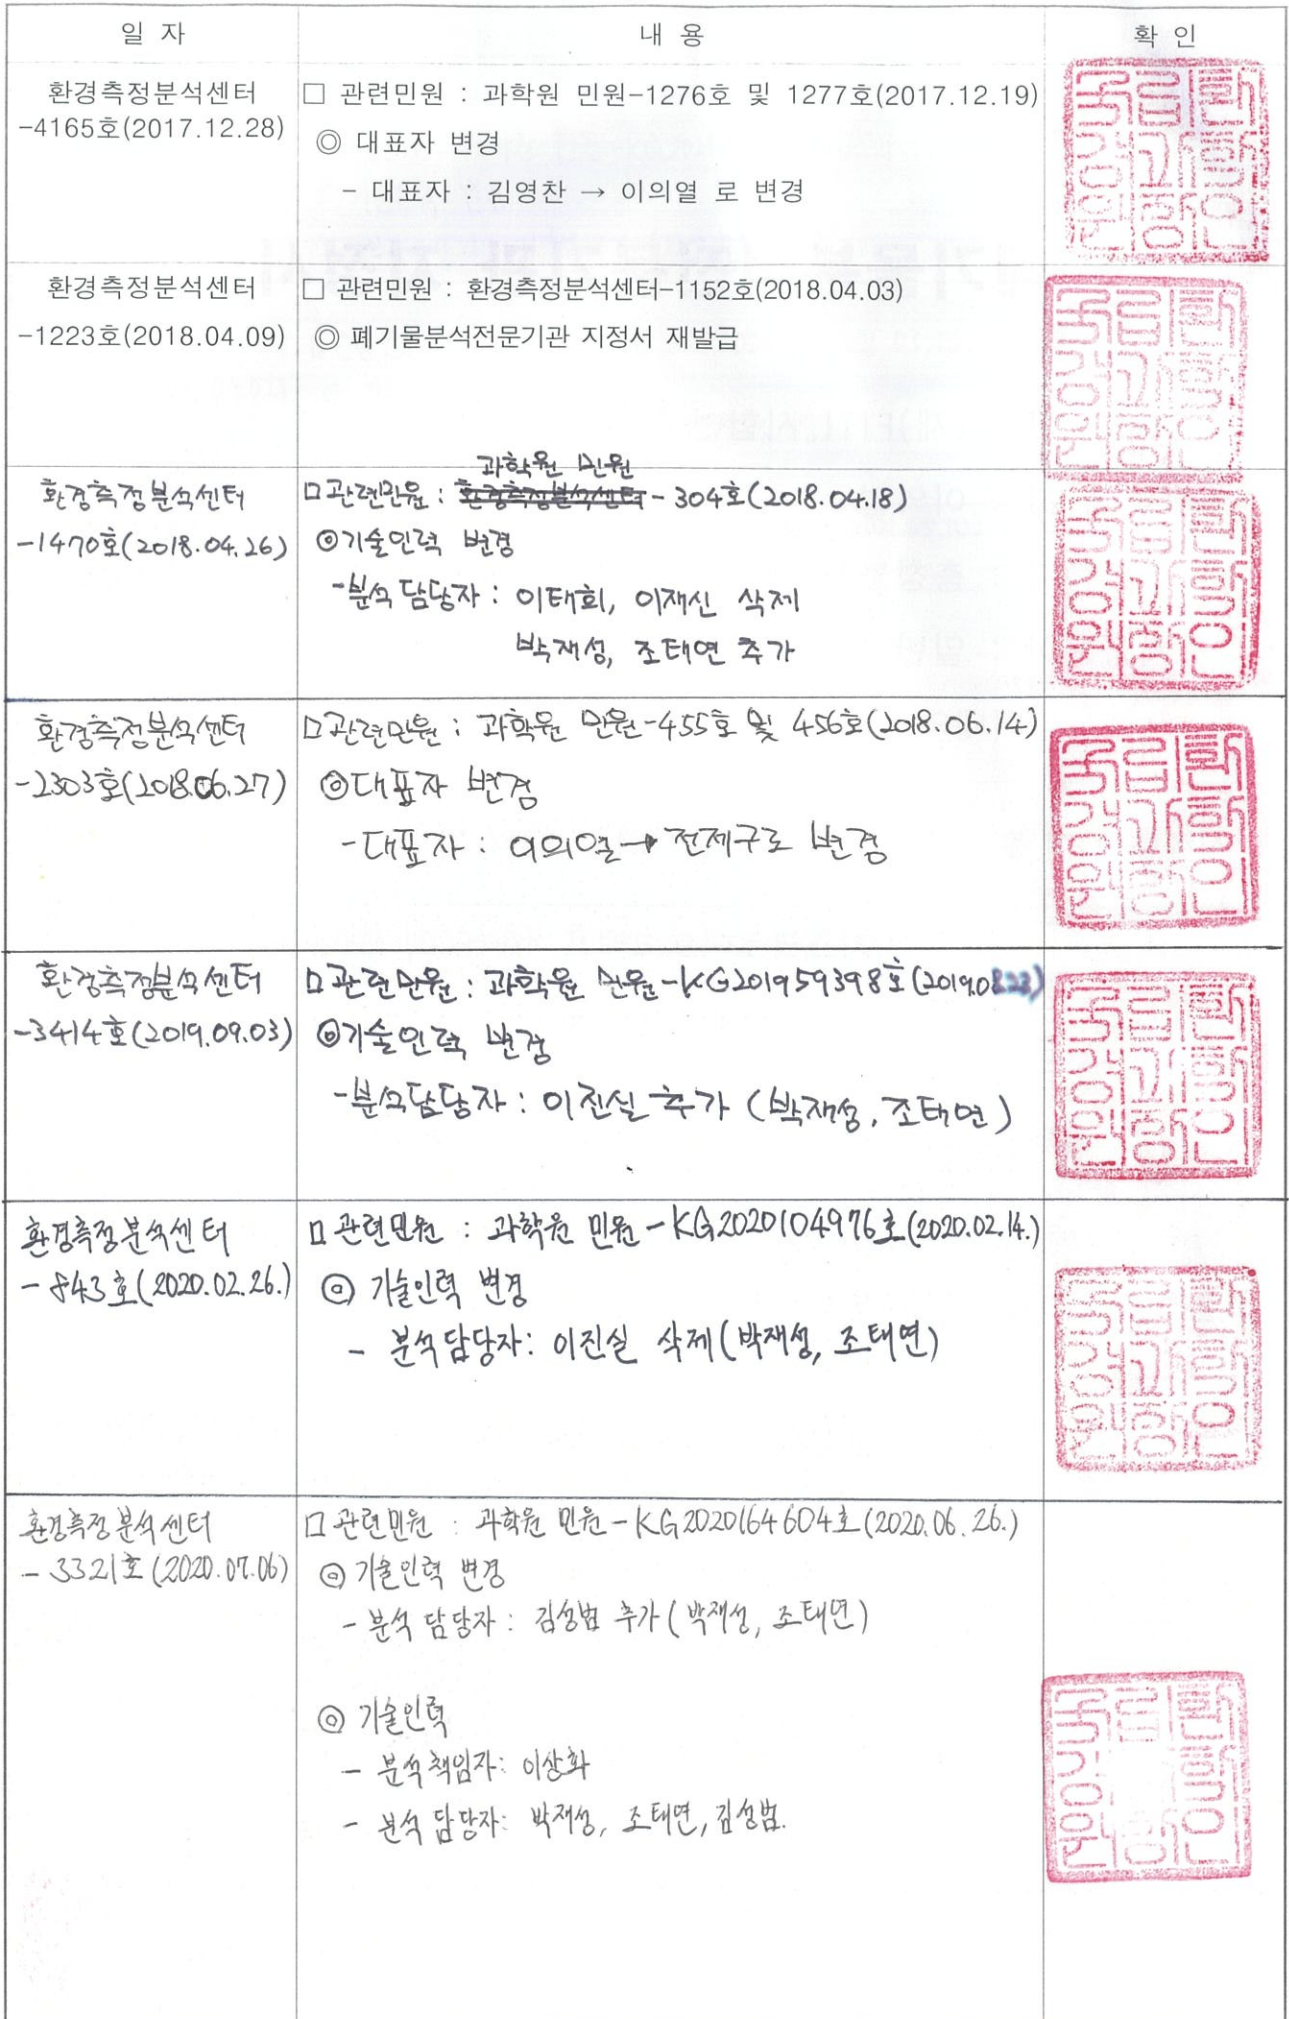 일 자
내 용
확 인
환경측정분석센터
-4165호(2017.12.28)
□ 관련민원 : 과학원 민원-1276호 및 1277호(2017.12.19)
◎ 대표자 변경
- 대표자 : 김영찬 → 이의열 로 변경
환경측정분석센터
-1223호(2018.04.09)
□ 관련민원 : 환경측정분석센터-1152호(2018.04.03)
◎ 폐기물분석전문기관 지정서 재발급
환경측정분석센터
-1470호(2018.04.26)
과학원 민원
□관련민원 : 환경측정분석센터 - 304호(2018.04.18)
◎기술인력 변경
-분석 담당자 : 이태희, 이재신 삭제
박재성, 조태연 추가
환경측정분석센터
-2303호(2018.06.27)
□관련민원 : 과학원 민원-455호 및 456호(2018.06.14)
◎대표자 변경
-대표자 : 이의열→ 전제구로 변경
환경측정분석센터
-3414호(2019.09.03)
□관련민원 : 과학원 민원-KG201959398호(2019.08.23)
◎기술인력 변경
-분석담당자 : 이진실 추가 (박재성, 조태연)
환경측정분석센터
- 843호(2020.02.26.)
□ 관련민원 : 과학원 민원-KG2020104976호(2020.02.14.)
◎ 기술인력 변경
- 분석담당자: 이진실 삭제(박재성, 조태연)
환경측정분석센터
- 3321호(2020.07.06)
□ 관련민원 : 과학원 민원-KG2020164604호(2020.06.26.)
◎ 기술인력 변경
- 분석 담당자: 김성범 추가(박재성, 조태연)
◎ 기술인력
- 분석책임자: 이상화
- 분석 담당자: 박재성, 조태연, 김성범.